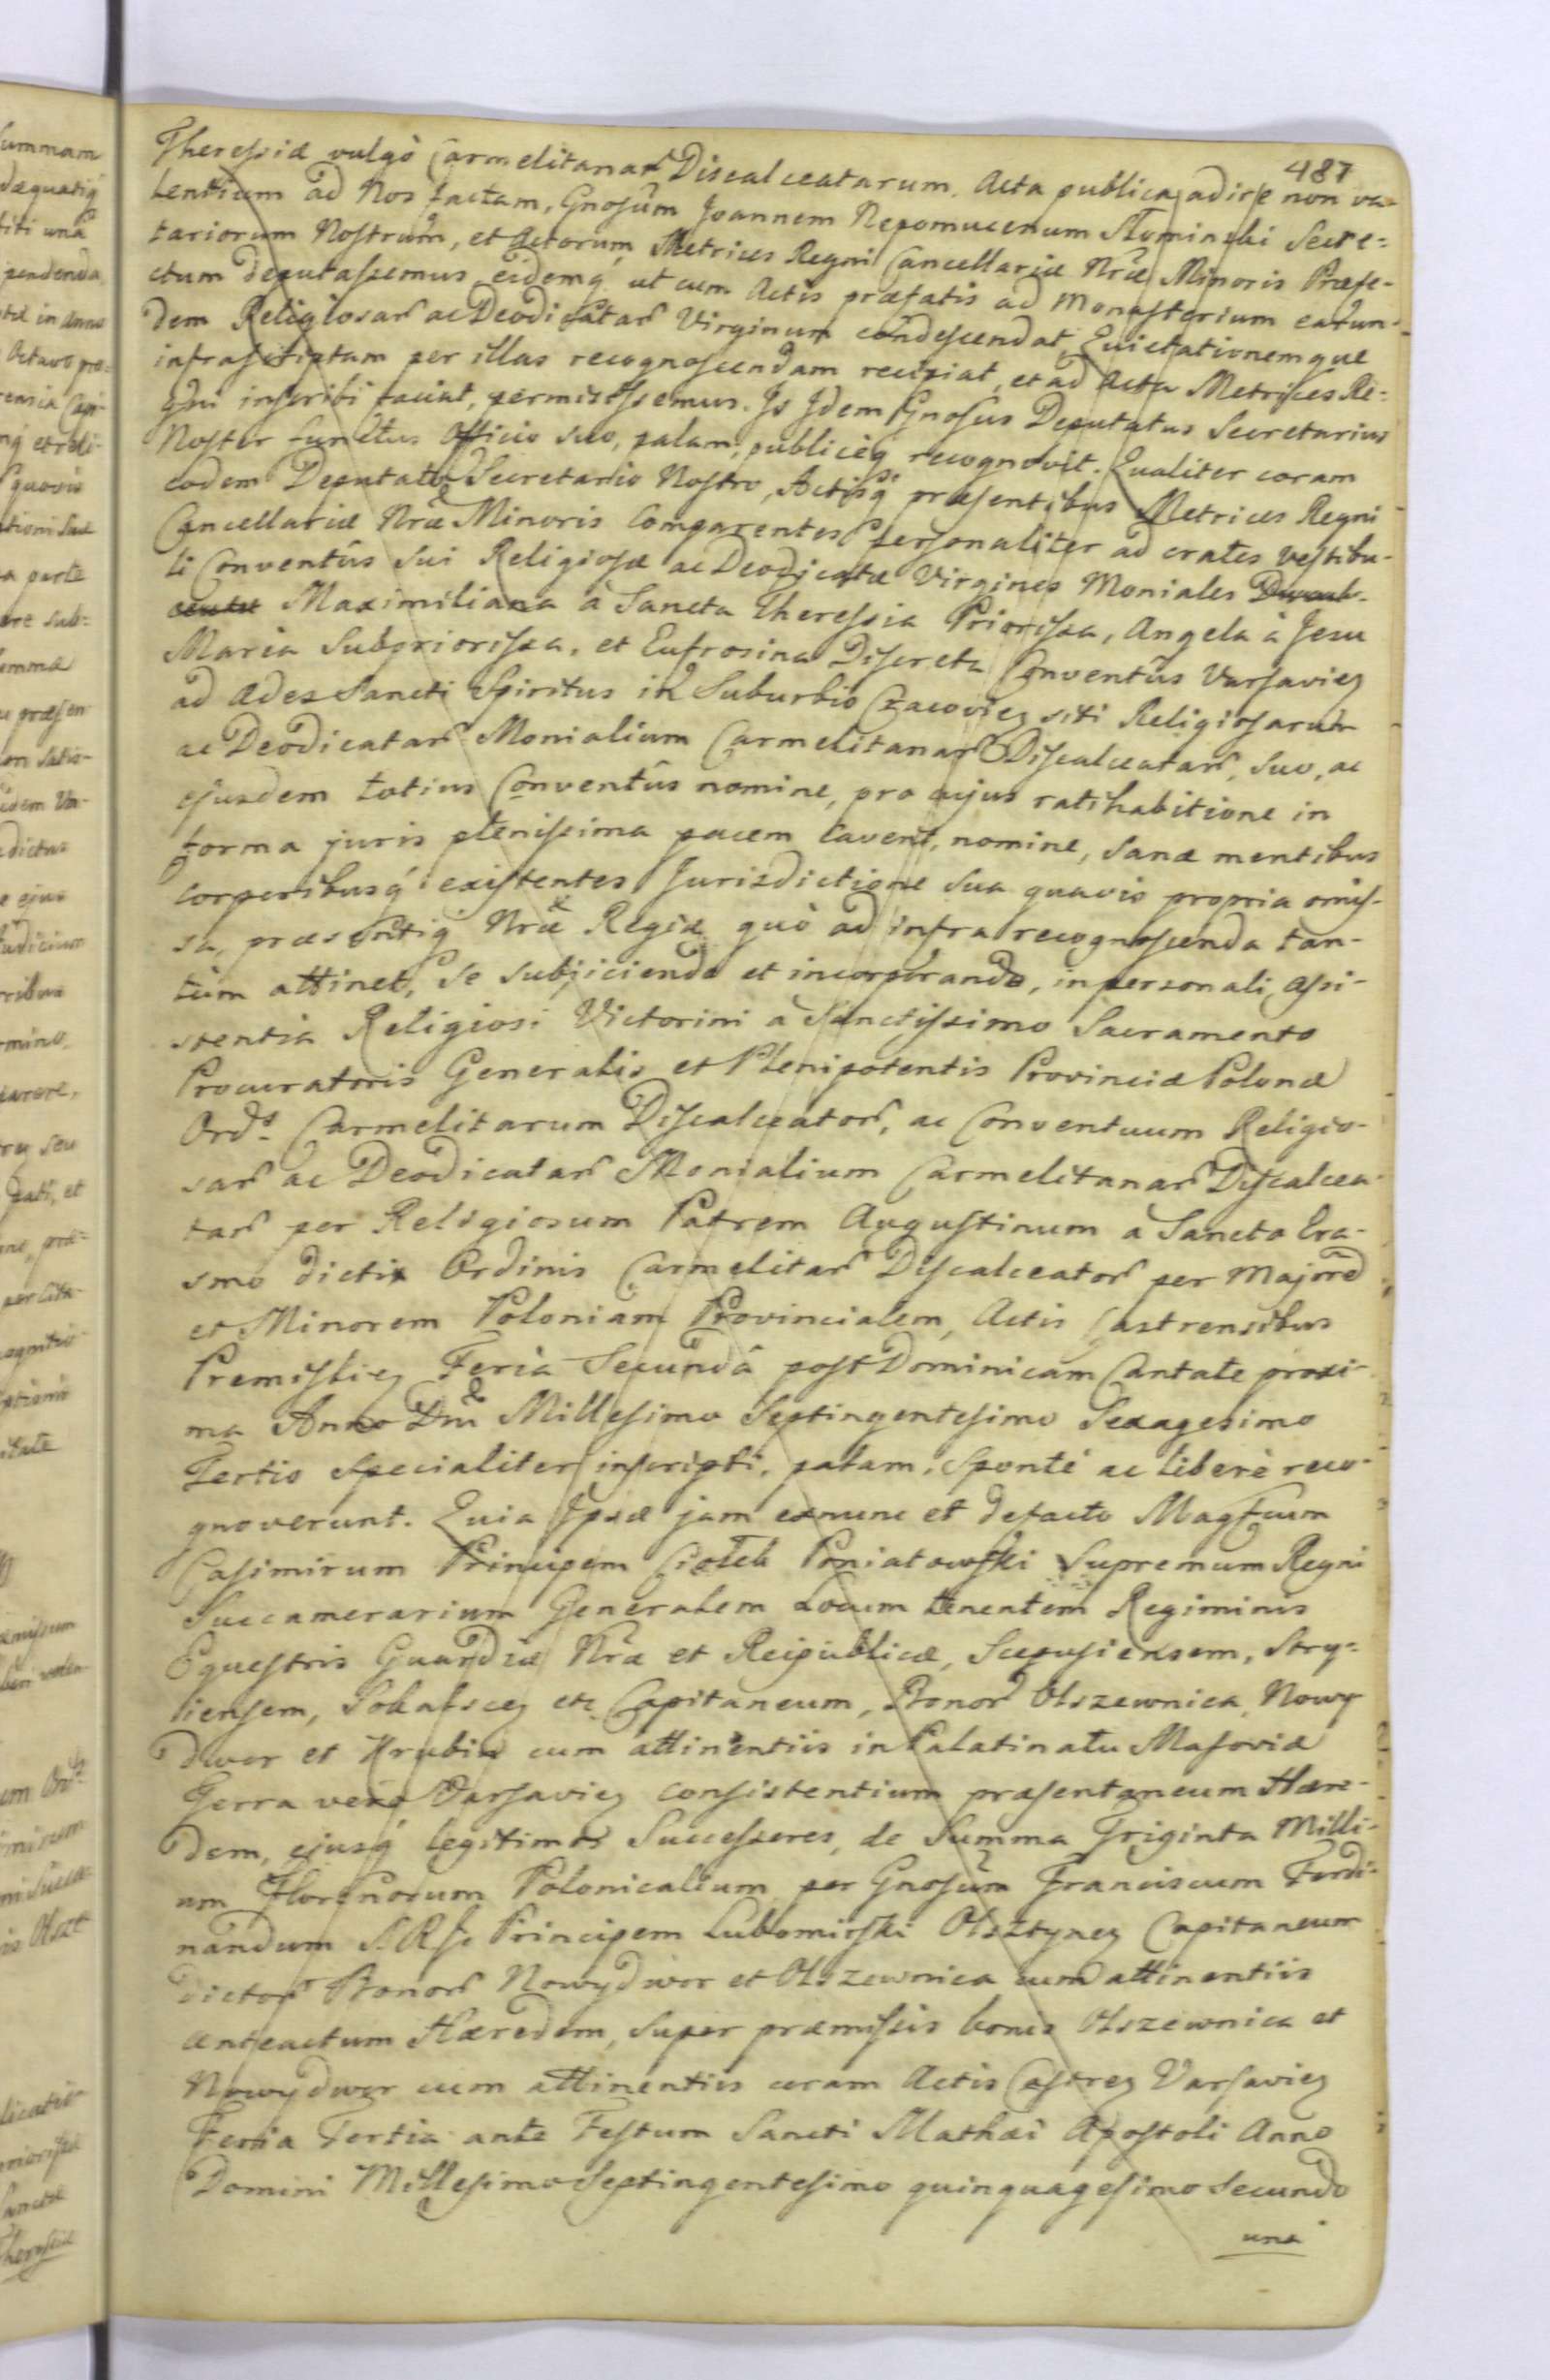 487
Theressiæ vulgò Carmelitanar Discalceatarum. Acta publica adire non va-
lentium ad Nos factam, Gnosum Joannem Nepomucenum Słominski Secre-
tariorum Nostrum, et Actorum Metrices Regni Cancellariæ Nræ Minoris Præfe-
ctum deputassemus eidemq́ ut cum Actis præfatis ad Monasterium earun-
dem Religiosar ac Deodicatar Virginum condescendat Quietationemque
infrascriptam per illas recognoscendam recipiat, et ad Acta Metrices Re-
gni inscribi faciat, permisissemus. Is Idem Gnosus Deputatus Secretarius
Noster functus Officio suo, palam, publiceq́ recognovit. Qualiter coram
eodem Deputato Secretario Nostro, Actisq́ præsentibus Metrices Regni
Cancellariæ Nræ Minoris Comparentes personaliter ad crates vestibu-
li Conventûs sui Religiosæ ac Deodicatæ Virgines Moniales
Maximiliana à Sancta Theressia Priorissa, Angela à Jesu
Maria Subpriorissa, et Eufrosina Discreta Conventûs Varsavieȝ
ad Ædes Sancti Spiritus in Suburbio Cracovieȝ siti Religiosarum
ac Deodicatar Monialium Carmelitanar Discalceatar, suo, ac
ejusdem totius Conventûs nomine, pro cujus ratihabitione in
forma juris plenissima pacem cavent, nomine, sanæ mentibus
corporibusq́ existentes Jurisdictione sua quavis propria omis-
sa, præsentiq́ Nræ Regiæ quò ad infra recognoscenda tan-
tùm attinet, se subjiciendo et incorporando, in personali assi-
stentia Religiosi Victorini à Sanctissimo Sacramento
Procuratoris Generalis et Plenipotentis Provinciæ Polonæ
Ordis Carmelitarum Discalceator, ac Conventuum Religio-
sar ac Deodicatar Monialium Carmelitanar Discalcea-
tar per Religiosum Patrem Augustinum à Sancto Era-
smo dicti Ordinis Carmelitar Discalceator per Majorē
et Minorem Poloniam Provincialem, Actis Castrensibus
Premislieȝ Feria Secundâ post Dominicam Cantate proxi-
ma Anno Dni Millesimo Septingentesimo Sexagesimo
Tertio specialiter inscripti, palam, sponte ac liberè reco-
gnoverunt. Quia Ipsæ jam exnunc et defacto Magfcum
Casimirum Principem Ciołek Poniatowski Supremum Regni
Succamerarium Generalem Locum tenentem Regiminis
Equestris Guardiæ Nræ et Reipublicæ, Scepusiensem, Stry-
liensem, Sokalsceȝ etc Capitaneum, Bonor Olszewnica, Nowy
dwor et Hrubia cum attinentiis in Palatinatu Masoviæ
Terra verò Varsavieȝ consistentium præsentaneum Hære-
dem, ejusq́ legitimos Successores, de Summa Triginta Milli-
um Florenorum Polonicalium per Gnosum Franciscum Ferdi-
nandum S.R.J. Principem Lubomirski Olsztyneȝ Capitaneum
dictor Bonor Nowydwor et Olszewnica cum attinentiis
anteactum Hæredem, super præmissis bonis Olszewnica et
Nowydwor cum attinentiis coram Actis Castreȝ Varsavieȝ
Feria Tertia ante Festum Sancti Mathæi Apostoli Anno
Domini Millesimo Septingentesimo quinquagesimo Secundo
una